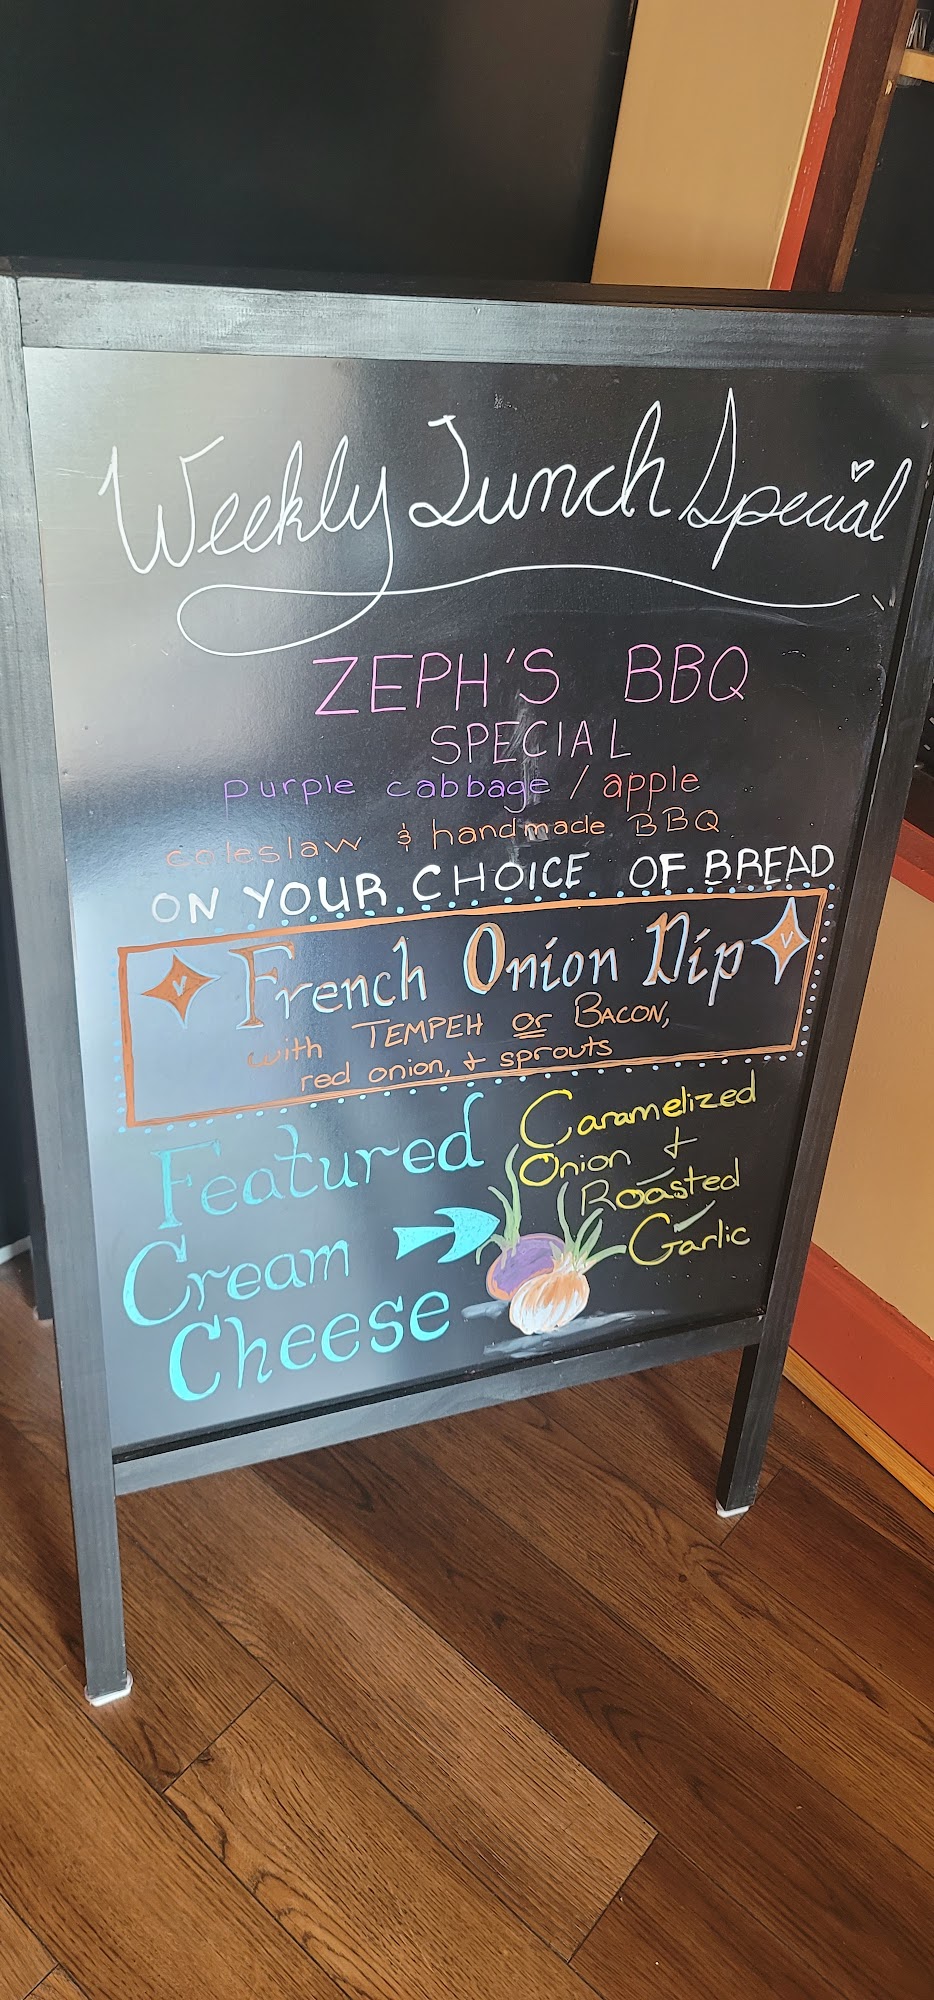 Weekly Lunch Special
ZEPH'S BBQ
SPECIAL
purple cabbage / apple
coleslaw & handmade BBQ
ON YOUR CHOICE OF BREAD
V French Onion Dip V
with TEMPEH or BACON,
red onion, + sprouts
Featured
Cream
Cheese
Caramelized
Onion +
Roasted
Garlic